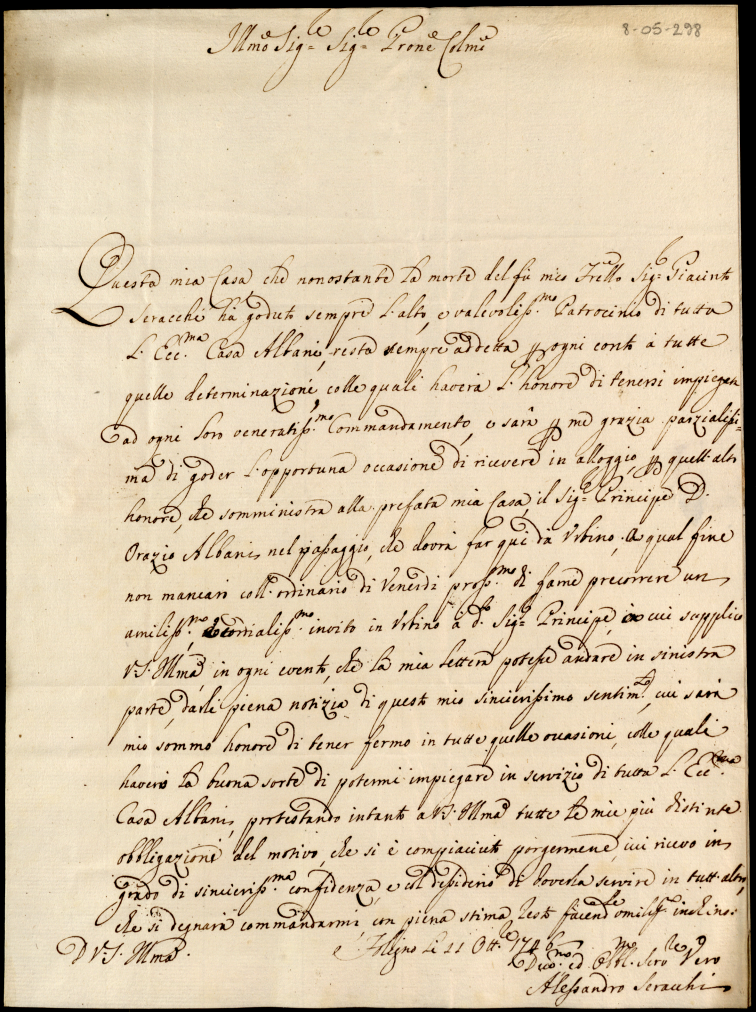 8-05-298
Illmo Sigre Sigre Prone Colmo
Questa mia Casa che nonostante la morte del fù mio Frello Sigr Giacinto
Seracchi ha goduto sempre l'alto, e valevoliss.mo Patrocinio di tutta
l'Ecc.ma Casa Albani, resta sempre addetta p ogni conto à tutte
quelle determinazioni, colle quali haverà l'honore di tenersi impiegata
ad ogni loro veneratiss.mo Commandamento, e sarà p me grazia parzialissi=
ma di goder l'opportuna occasione di ricevere in alloggio, p quell'alto
honore, che somministra alla prefata mia Casa, il Sigr Principe D.
Orazio Albani, nel passaggio, che dovrà far quì da Urbino, a qual fine
non mancarò coll'ordinario di Venerdì pross.mo di farne precorrere un
umiliss.mo, e cordialiss.mo invito in Urbino à do Sigr Principe, in cui supplico
V.S. Illma, in ogni evento, che la mia lettera potesse andare in sinistra
parte, darli piena notizia di questo mio sincierissimo sentimto, cui sarà
mio sommo honore di tener fermo in tutte quelle occasioni, colle quali
haverò la buona sorte di potermi impiegare in servizio di tutta l'Ecc.ma
Casa Albani, protestando intanto a V.S. Illma tutte le mie più distinte
obbligazioni del motivo, che si è compiaciuta porgermene, cui ricevo in
grado di sincieriss.ma confidenza, e col desiderio di doverla servire in tutt'altro,
che si degnarà commandarmi con piena stima, resto facendole umiliss.
D V.S. Illma.
Foligno li 11 Ott.e 1746
Devo.mo ed Obbl.mo Serore Vero
Alessandro Seracchi